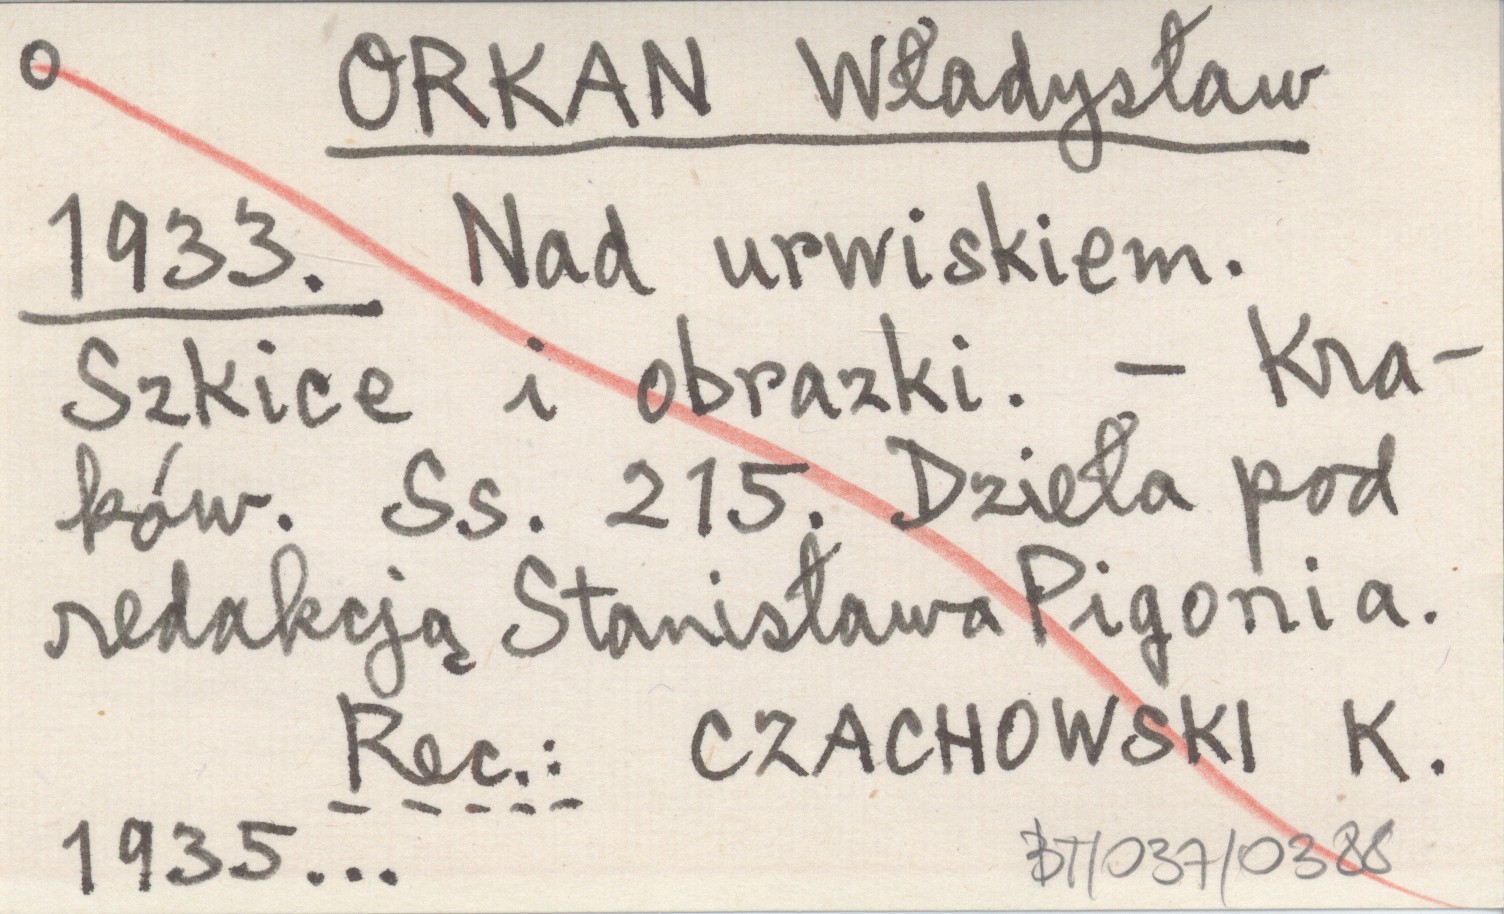 o ORKAN Władysław
1933. Nad urwiskiem.
Szkice i obrazki. – Kra-
ków. Ss. 215. Dzieła pod
redakcją Stanisława Pigonia.
Rec.: CZACHOWSKI K.
1935...
BT/037/0388